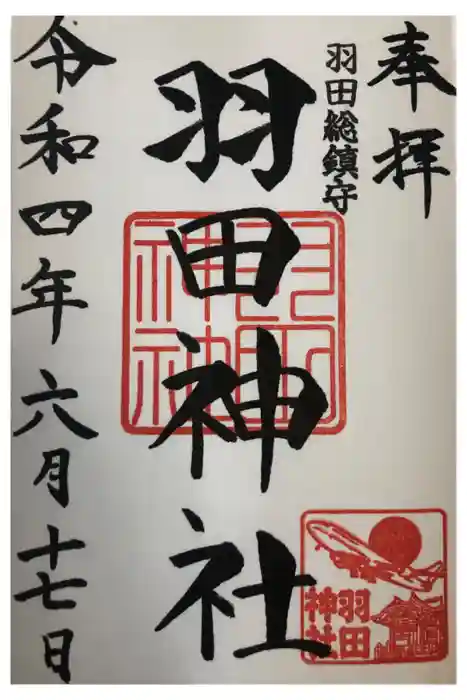 奉拝
羽田総鎮守
羽田神社
羽田神社
羽田
神社
令和四年六月十七日